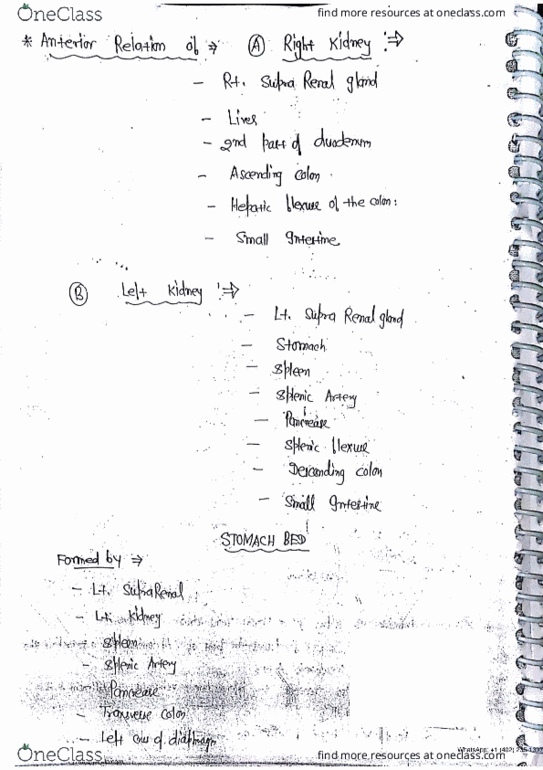 OneClass find more resources at oneclass.com
* Anterior Relation of ⇒ Ⓐ Right Kidney :⇒
- Rt. Supra Renal gland
- Liver
- 2nd part of duodenum
- Ascending colon.
- Hepatic flexure of the colon:
- Small Intestine
Ⓑ Left Kidney :⇒
- Lt. Supra Renal gland
- Stomach
- Spleen
- Splenic Artery
- Pancrease
- Splenic flexure
- Descending colon
- Small Intestine
STOMACH BED
Formed by ⇒
- Lt. SupraRenal
- Lt. Kidney
- Spleen
- Splenic Artery
- Pancrease
- Transverse Colon
- Left of diaphragm
OneClass find more resources at oneclass.com